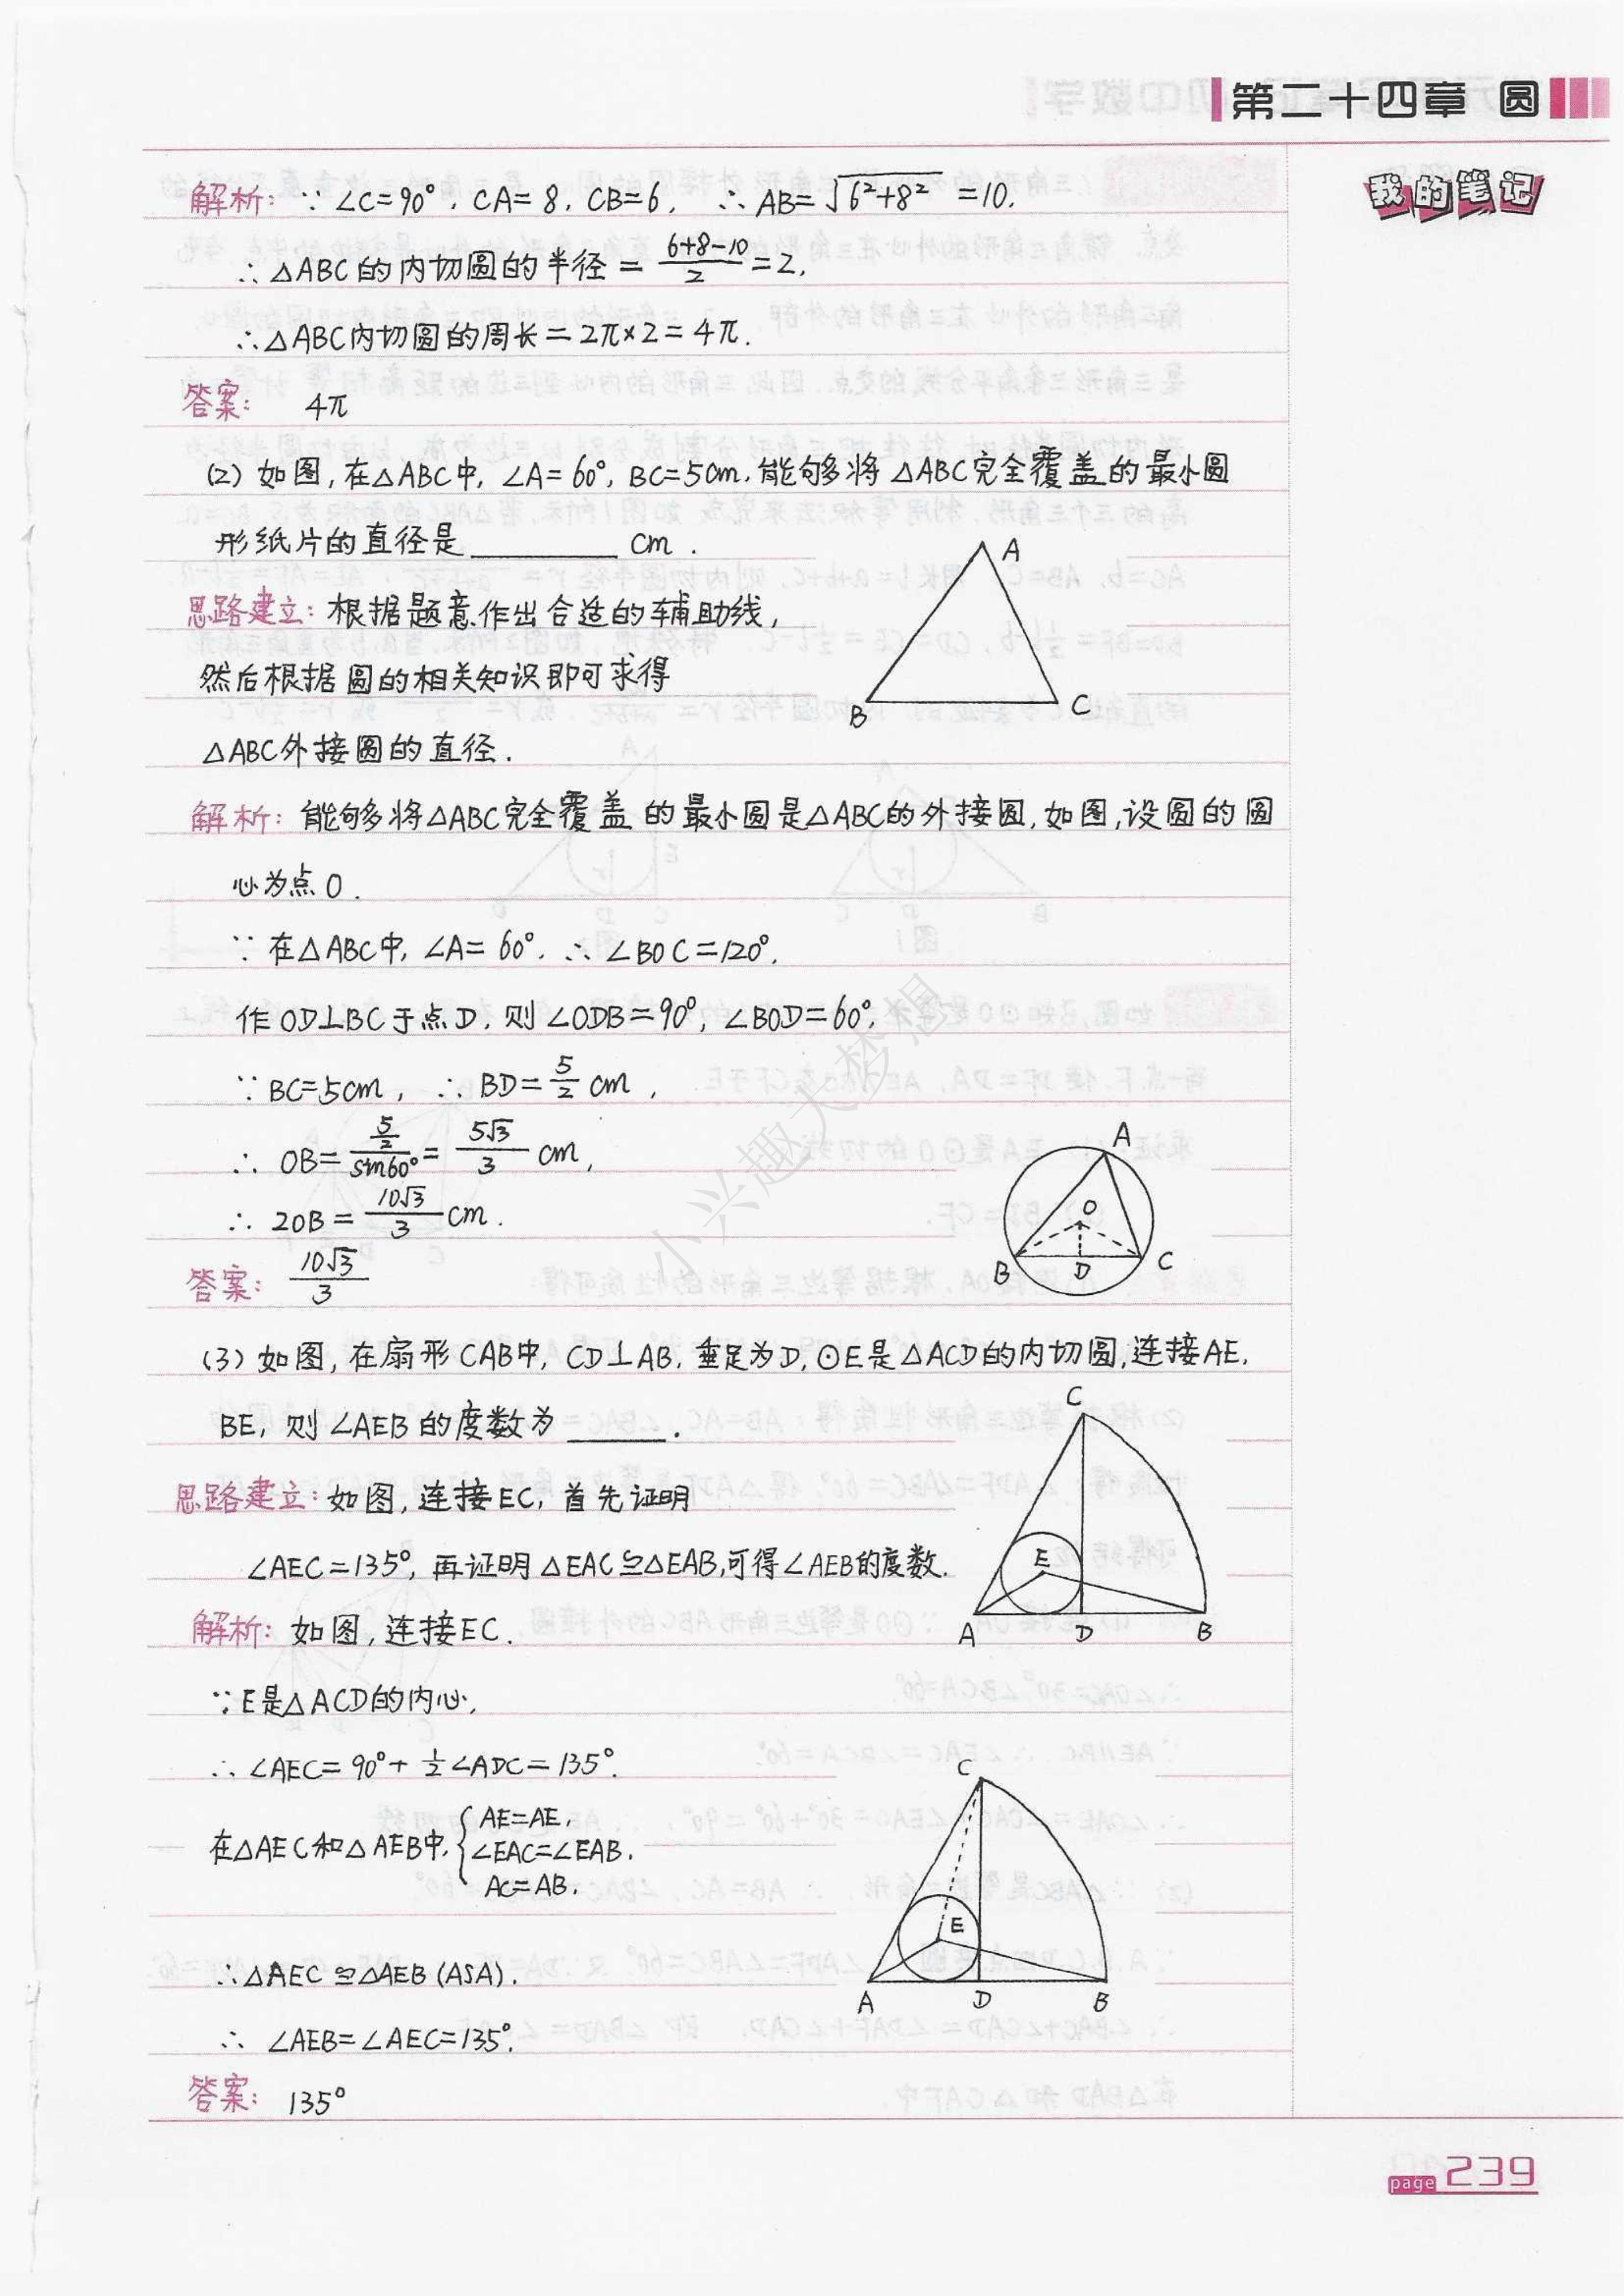 第二十四章 圆
我的笔记
解析: ∵ ∠C=90°, CA=8, CB=6, ∴ AB=√(6²+8²) =10.
∴ △ABC的内切圆的半径 = (6+8-10)/2 =2.
∴ △ABC内切圆的周长=2π×2=4π.
答案: 4π
(2) 如图,在△ABC中, ∠A=60°, BC=5cm,能够将△ABC完全覆盖的最小圆
形纸片的直径是________ cm.
A
B
C
思路建立: 根据题意作出合适的辅助线,
然后根据圆的相关知识即可求得
△ABC外接圆的直径.
解析: 能够将△ABC完全覆盖的最小圆是△ABC的外接圆,如图,设圆的圆
心为点O.
∵ 在△ABC中, ∠A=60°, ∴ ∠BOC=120°.
作OD⊥BC于点D, 则∠ODB=90°, ∠BOD=60°.
∵ BC=5cm, ∴ BD=5/2 cm,
∴ OB=(5/2)/sin60°=5√3/3 cm,
∴ 2OB=10√3/3 cm.
A
O
B
D
C
答案: 10√3/3
(3) 如图,在扇形CAB中, CD⊥AB, 垂足为D,⊙E是△ACD的内切圆,连接AE,
BE, 则∠AEB的度数为______.
C
E
A
D
B
思路建立: 如图,连接EC, 首先证明
∠AEC=135°, 再证明△EAC≌△EAB,可得∠AEB的度数.
解析: 如图,连接EC.
∵ E是△ACD的内心,
∴ ∠AEC=90°+1/2∠ADC=135°.
在△AEC和△AEB中, { AE=AE,
∠EAC=∠EAB,
AC=AB,
C
E
A
D
B
∴ △AEC≌△AEB (ASA).
∴ ∠AEB=∠AEC=135°.
答案: 135°
小兴趣大梦想
page 239